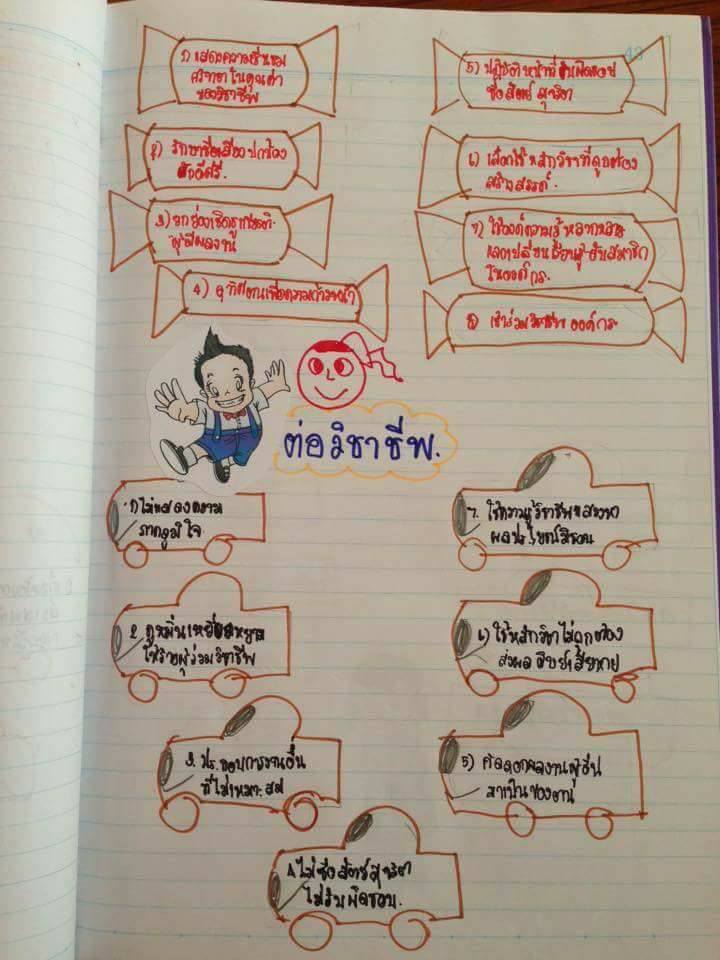 43
1) แสดงความชื่นชม
ศรัทธาในคุณค่า
ของวิชาชีพ
2) รักษาชื่อเสียงปกป้อง
ศักดิ์ศรี.
3) ยกย่องเชิดชูเกียรติ
ผู้มีผลงาน
4) อุทิศตนเพื่อความก้าวหน้า
5) ปฏิบัติหน้าที่รับผิดชอบ
ซื่อสัตย์สุจริต
6) เลือกใช้หลักวิชาที่ถูกต้อง
สร้างสรรค์.
7) ใช้องค์ความรู้หลากหลาย
แลกเปลี่ยนเรียนรู้กับสมาชิก
ในองค์กร.
8) เข้าร่วมวิชาชีพองค์กร
ต่อวิชาชีพ.
1) ไม่แสดงความ
ภาคภูมิใจ
2. ดูหมิ่นเหยียดหยาม
ให้ร้ายผู้ร่วมวิชาชีพ
3. ประกอบการงานอื่น
ที่ไม่เหมาะสม
4. ไม่ซื่อสัตย์สุจริต
ไม่รับผิดชอบ.
5) คัดลอกผลงานผู้อื่น
มาเป็นของตน
6) ใช้หลักวิชาไม่ถูกต้อง
ส่งผลศิษย์เสียหาย
7. ใช้ความรู้วิชาชีพแสวงหา
ผลประโยชน์มิชอบ